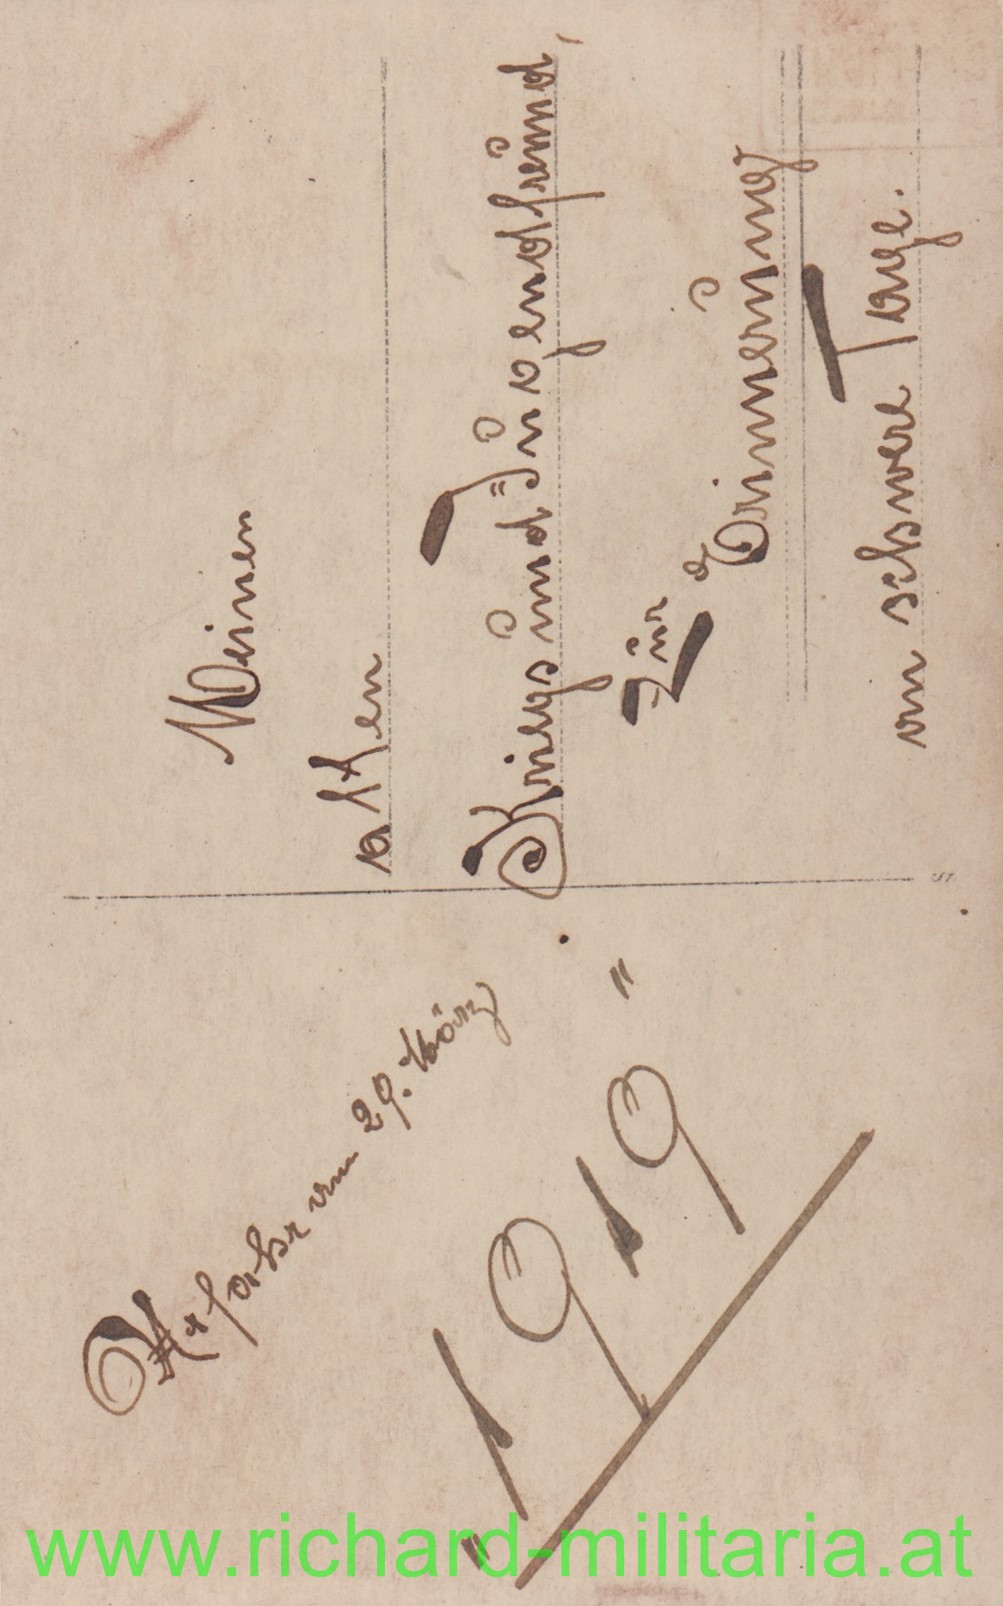 Urfahr am 29. März
"1919"
Meinen
alten
Kriegs und=Jugendfreund,
Zur
Erinnerung
an schwere Tage.
www.richard-militaria.at